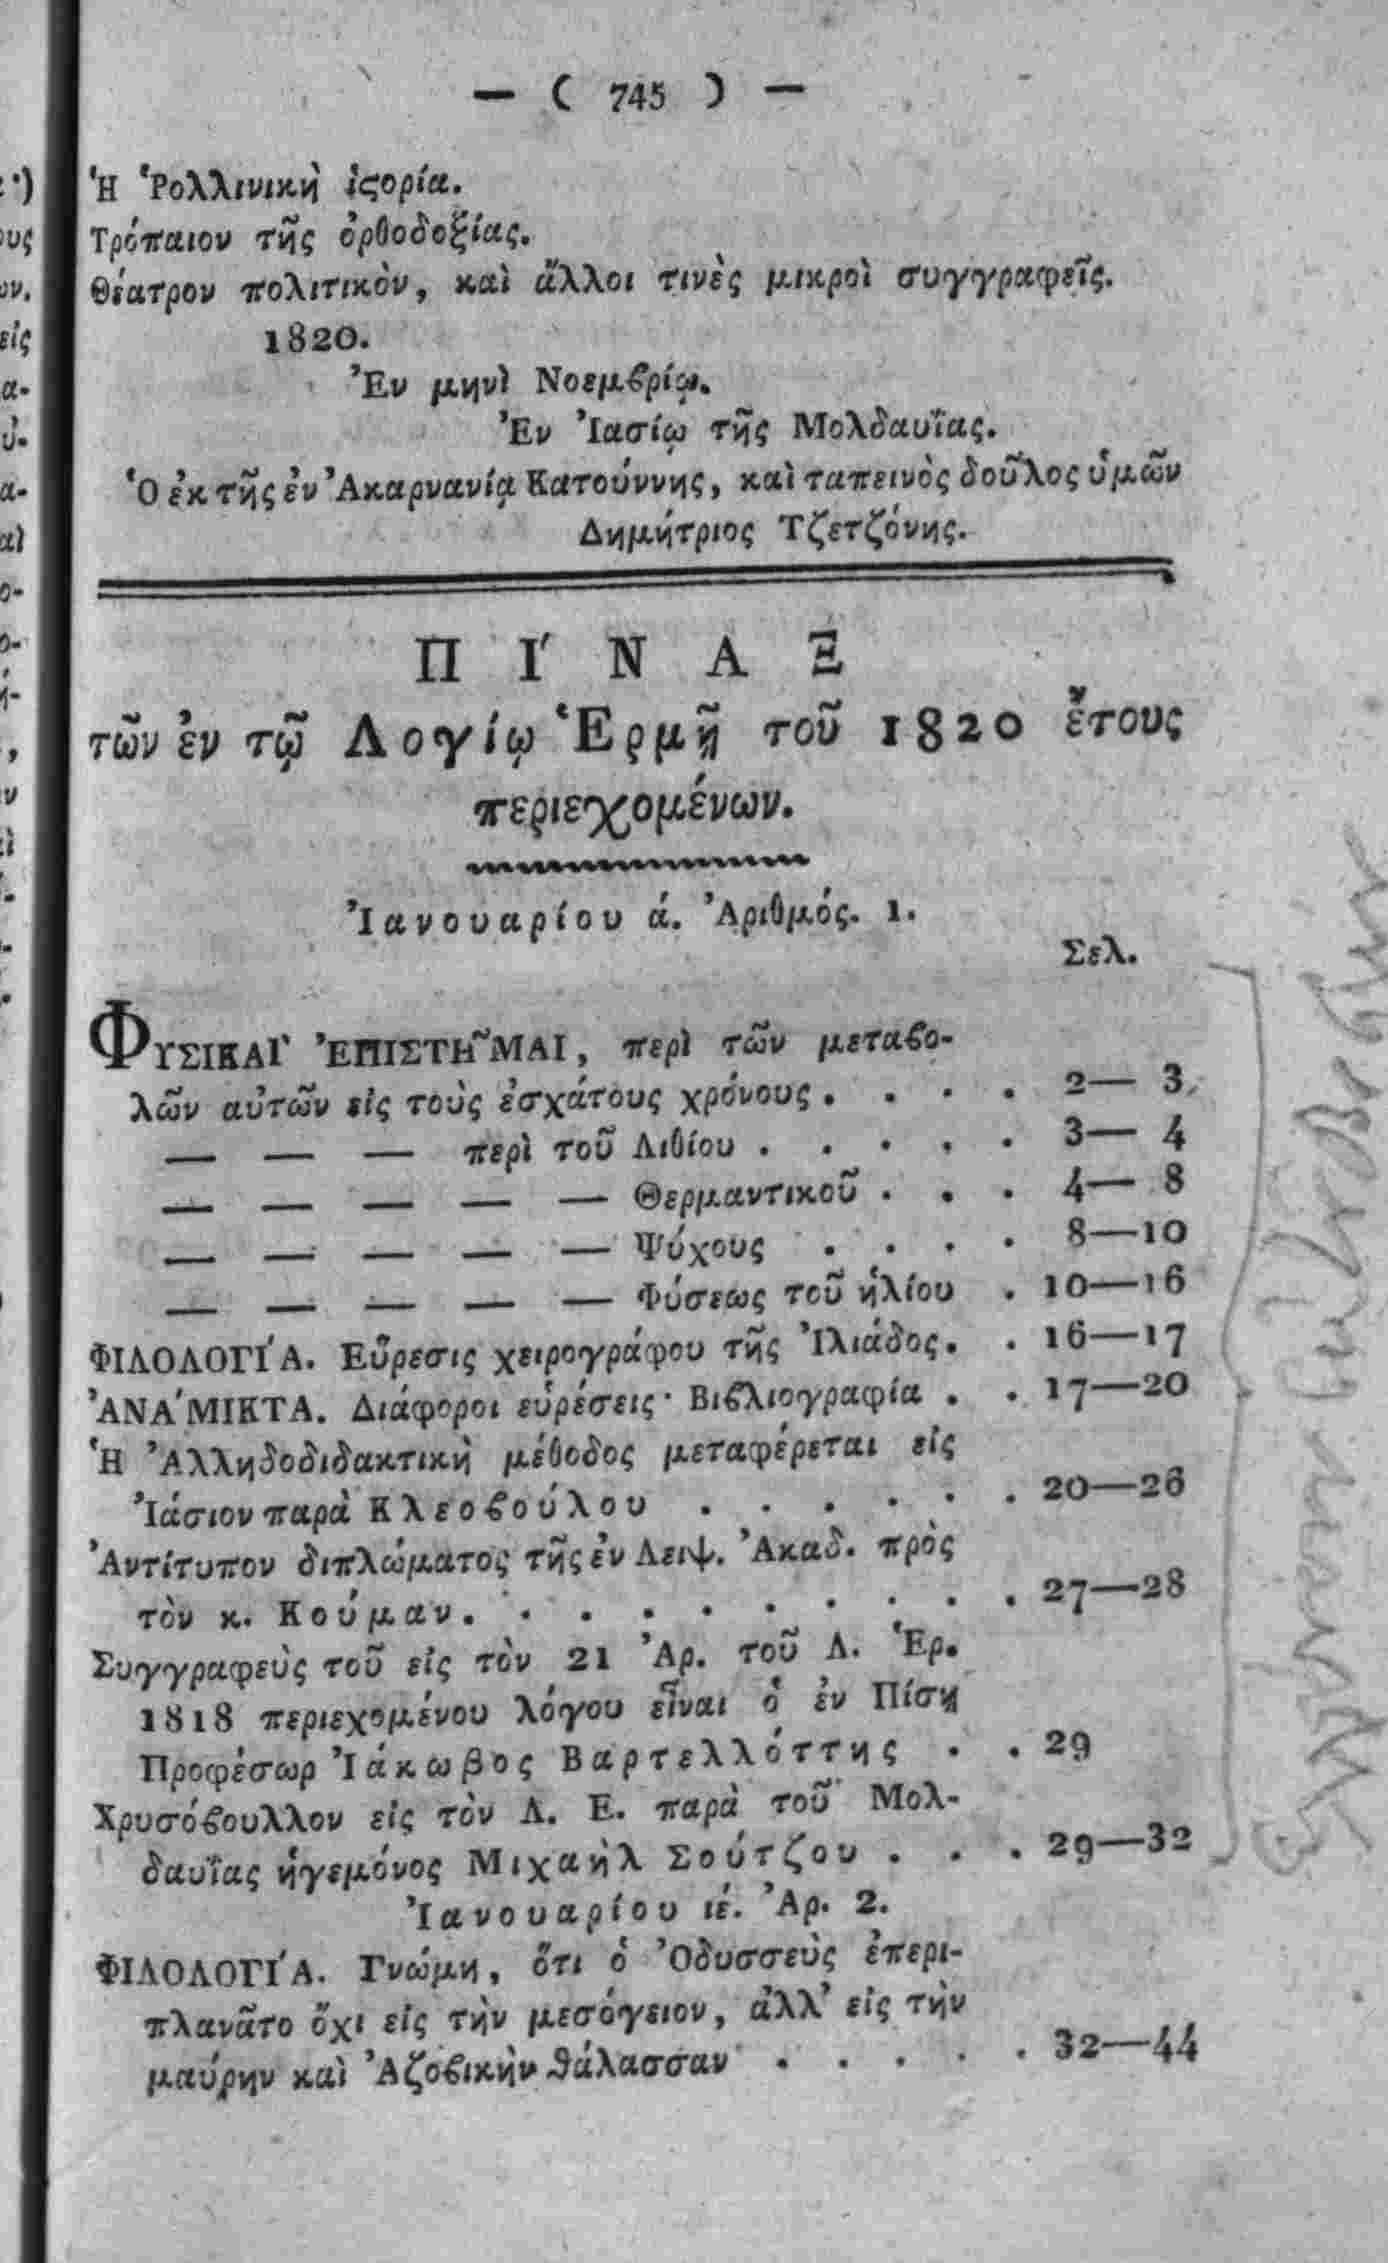 — ( 745 ) —
Ἡ Ῥολλινικὴ ἱϛορία.
Τρόπαιον τῆς ὀρθοδοξίας.
Θέατρον πολιτικὸν, καὶ ἄλλοι τινὲς μικροὶ συγγραφεῖς.
1820.
Ἐν μηνὶ Νοεμϐρίῳ.
Ἐν Ἰασίῳ τῆς Μολδαυΐας.
Ὁ ἐκ τῆς ἐν Ἀκαρνανίᾳ Κατούννης, καὶ ταπεινὸς δοῦλος ὑμῶν
Δημήτριος Τζετζόνης.
ΠΙ΄ΝΑΞ
τῶν ἐν τῷ Λογίῳ Ἑρμῇ τοῦ 1820 ἔτους
περιεχομένων.
Ἰανουαρίου ά. Ἀριθμός. 1.
Σελ.
ΦΥΣΙΚΑΙ῾ ἘΠΙΣΤΗ῀ΜΑΙ, περὶ τῶν μεταϐο-
λῶν αὐτῶν εἰς τοὺς ἐσχάτους χρόνους . . . . 2— 3
— — — περὶ τοῦ Λιθίου . . . . . 3— 4
— — — — — Θερμαντικοῦ . . . 4— 8
— — — — — Ψύχους . . . . 8—10
— — — — — Φύσεως τοῦ ἡλίου . 10—16
ΦΙΛΟΛΟΓΙ΄Α. Εὕρεσις χειρογράφου τῆς Ἰλιάδος. . 16—17
ἈΝΑ΄ΜΙΚΤΑ. Διάφοροι εὑρέσεις· Βιϐλιογραφία . . 17—20
Ἡ Ἀλληδοδιδακτικὴ μέθοδος μεταφέρεται εἰς
Ἰάσιον παρὰ Κλεοϐούλου . . . . . . 20—26
Ἀντίτυπον διπλώματος τῆς ἐν Λειψ. Ἀκαδ. πρὸς
τὸν κ. Κούμαν. . . . . . . . . . 27—28
Συγγραφεὺς τοῦ εἰς τὸν 21 Ἀρ. τοῦ Λ. Ἑρ.
1818 περιεχομένου λόγου εἶναι ὁ ἐν Πίσῃ
Προφέσωρ Ἰάκωβος Βαρτελλόττης . . 29
Χρυσόϐουλλον εἰς τὸν Λ. Ε. παρὰ τοῦ Μολ-
δαυΐας ἡγεμόνος Μιχαὴλ Σούτζου . . . 29—32
Ἰανουαρίου ιέ. Ἀρ. 2.
ΦΙΛΟΛΟΓΙ΄Α. Γνώμη, ὅτι ὁ Ὀδυσσεὺς ἐπερι-
πλανᾶτο ὄχι εἰς τὴν μεσόγειον, ἀλλ' εἰς τὴν
μαύρην καὶ Ἀζοϐικὴν θάλασσαν . . . . . 32—44